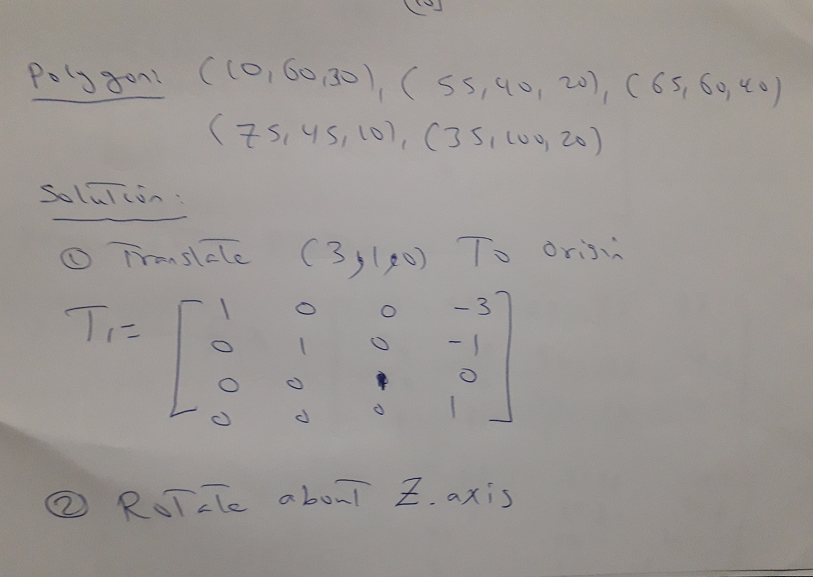 Polygon: (10,60,30), (55,40,20), (65,60,40)
(75,45,10), (35,100,20)
Solution:
① Translate (3,1,0) To origin
T₁= [ 1 0 0 -3
0 1 0 -1
0 0 1 0
0 0 0 1 ]
② Rotate about Z-axis